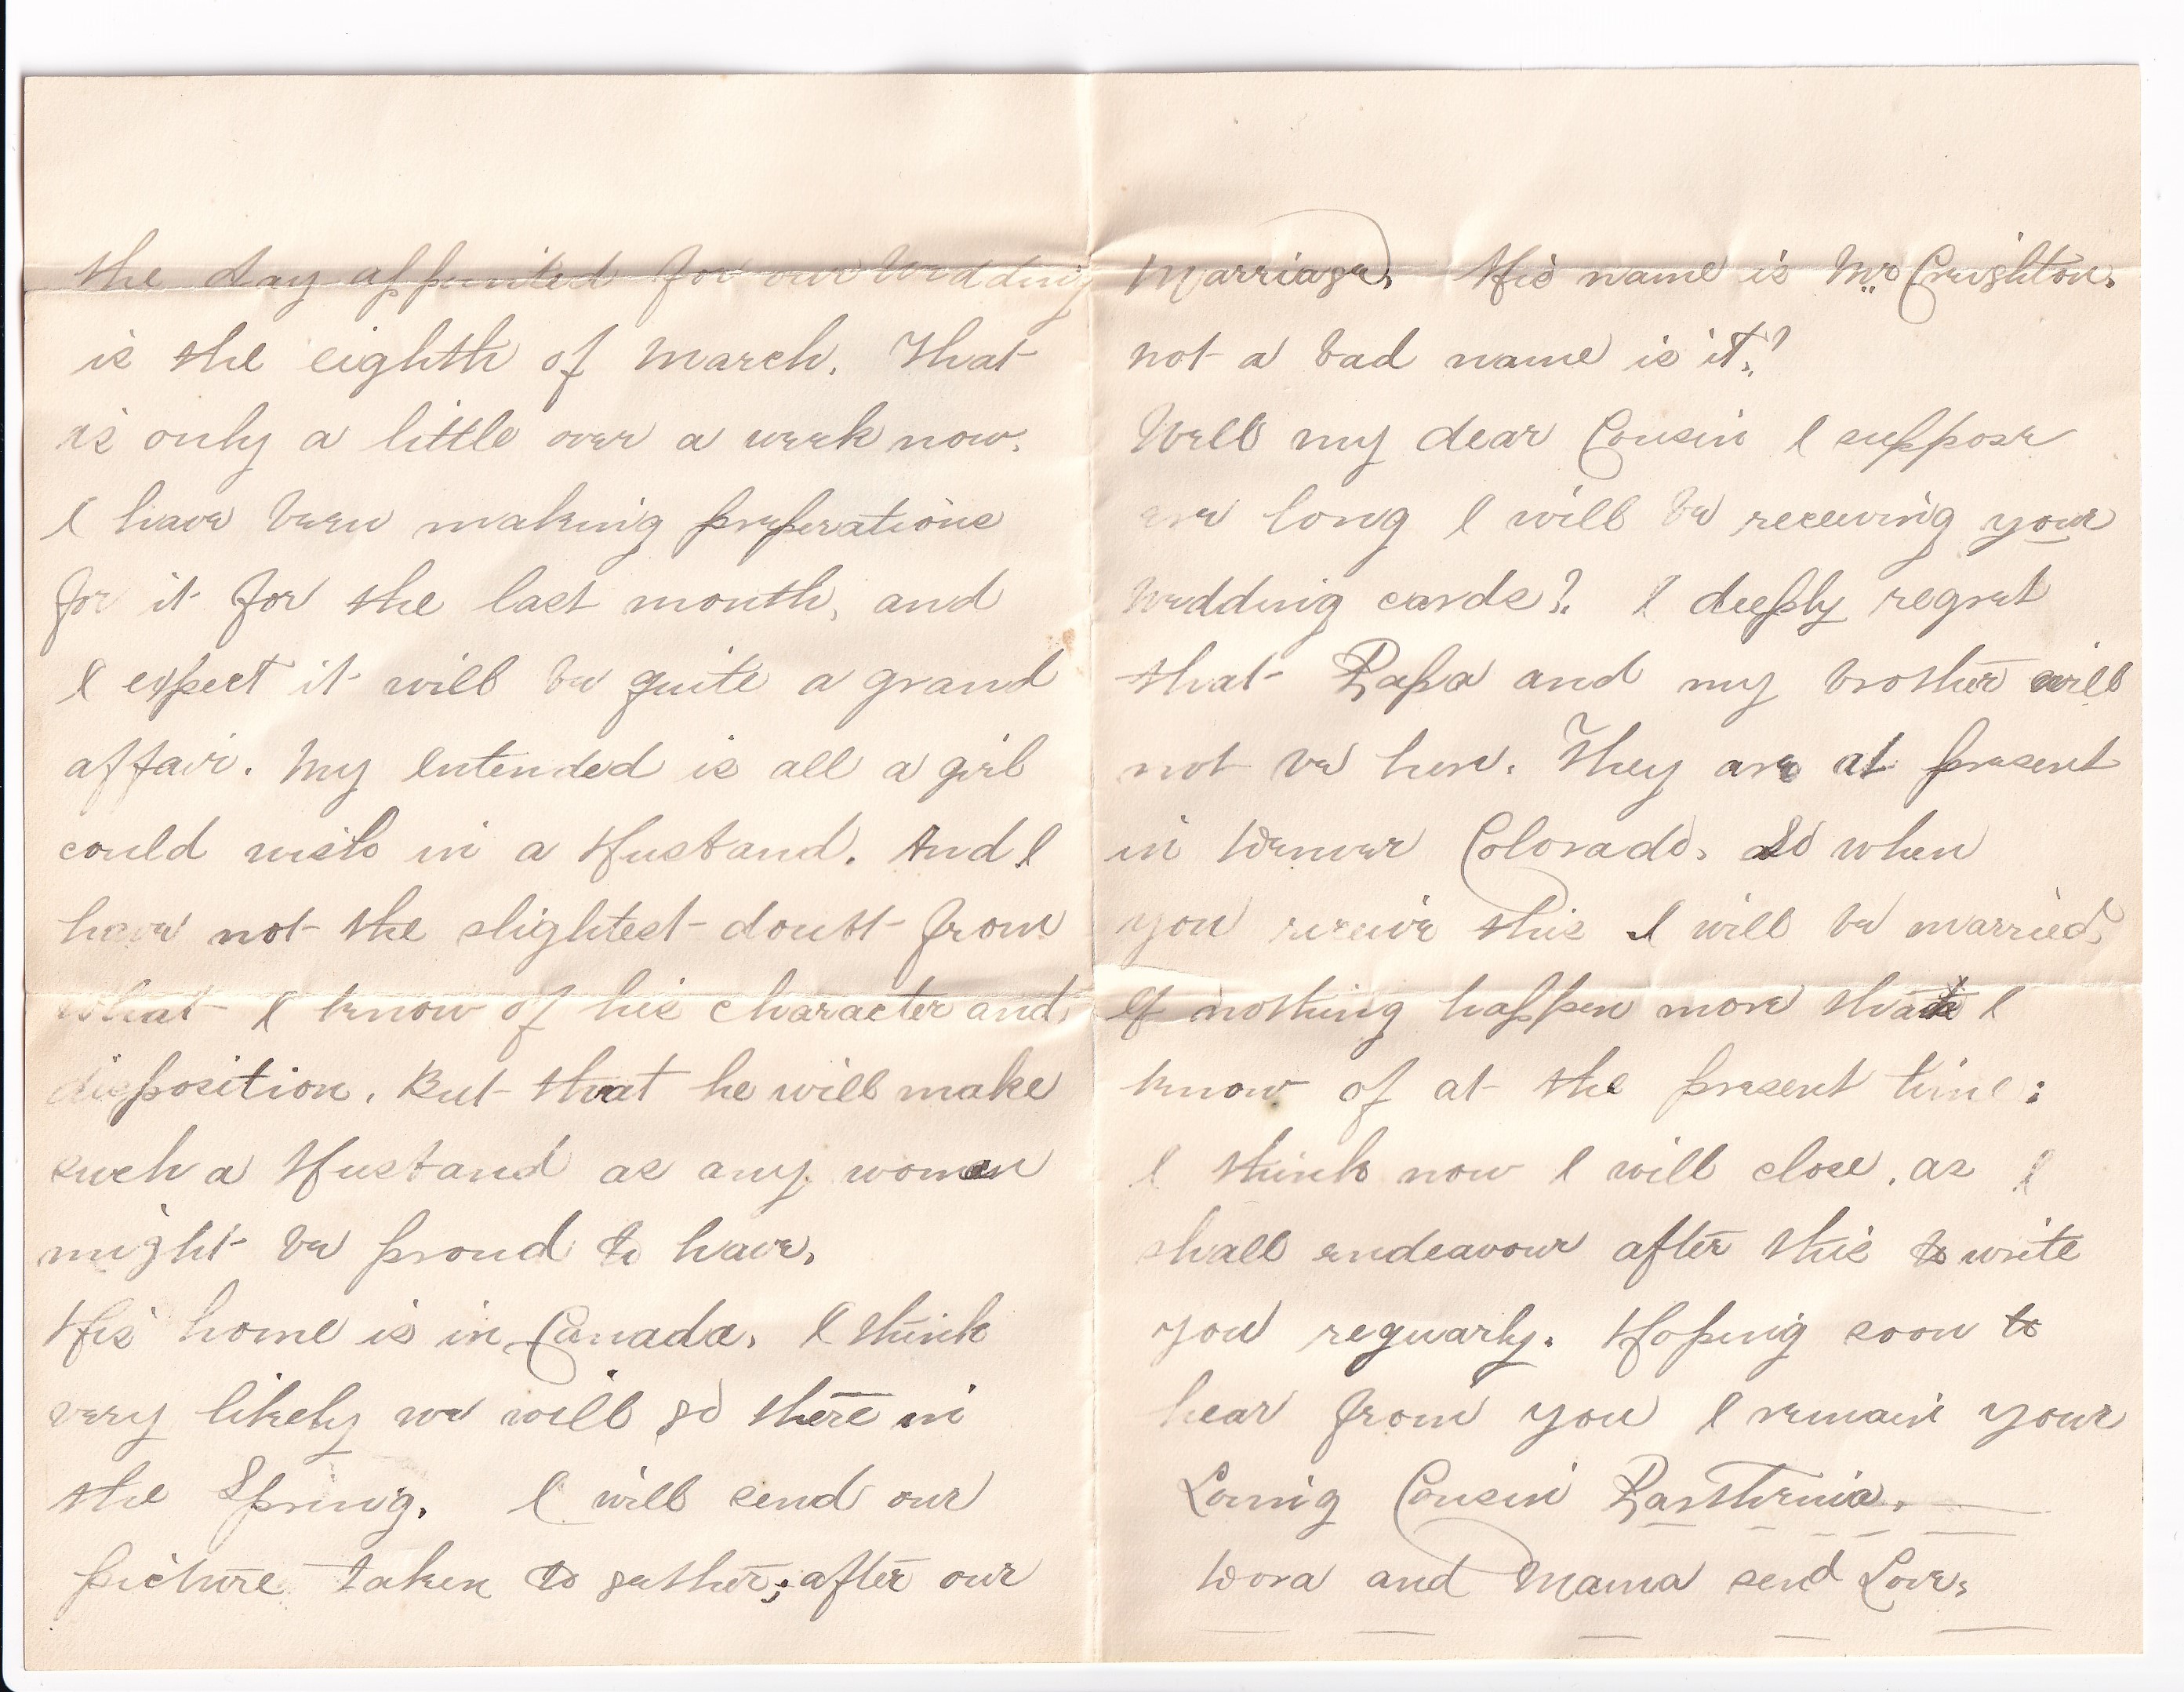 the day appointed for our Wedding
is the eighth of March. That
is only a little over a week now.
I have been making preperations
for it for the last month, and
I expect it will be quite a grand
affair. My Intended is all a girl
could wish in a Husband. And I
have not the slightest doubt from
what I know of his character and
disposition. But that he will make
such a Husband as any women
might be proud to have.
His home is in Canada. I think
very likely we will go there in
the Spring. I will send our
picture taken to gether; after our
Marriage. His name is Mr Creighton.
not a bad name is it?
Well my dear Cousin I suppose
ere long I will be receiving your
Wedding cards? I deeply regret
that Papa and my brother will
not be here. They are at present
in Denver Colorado. So when
you receive this I will be married,
If nothing happen more than I
know of at the present time:
I think now I will close. as I
shall endeavour after this to write
you reguarly. Hoping soon to
hear from you I remain your
Loving Cousin Parthenia.
Dora and Mama send Love.